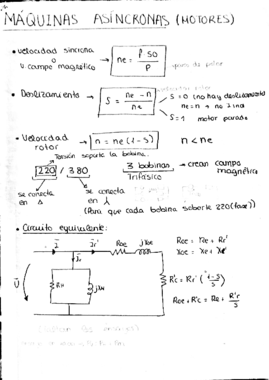 MÁQUINAS ASÍNCRONAS (MOTORES)
• velocidad síncrona
o
v. campo magnético → ne = f 60 / P
• Deslizamiento → S = ne - n / ne
S = 0 (no hay deslizamiento)
ne = n → no gira
S = 1 motor parado
• Velocidad rotor → n = ne (1-S) n < ne
Tensión soporta la bobina.
220 / 380
3 bobinas → crean campo magnético
Trifásico
se conecta en Δ
se conecta en Y
(Para que cada bobina soporte 220 (fase))
• Circuito equivalente:
I I' Rcc jXcc
U
Rcc = Re + Rr'
Xcc = Xe + Xr'
R'c = Rr' (1-S / S)
Rcc + R'c = Re + R'r / S